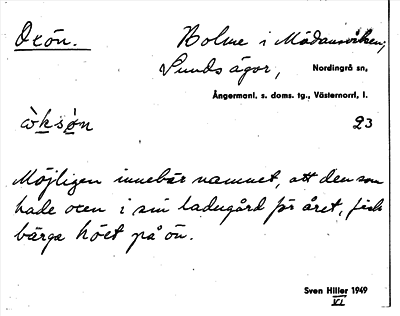 Oxön.
Holme i Mädanviken,
Sunds ägor, Nordingrå sn,
Ångermanl. s. doms. tg., Västernorrl. l.
ò̀ksøn 23
Möjligen innebär namnet, att den som
hade oxen i sin ladugård för året, fick
bärga höet på ön.
Sven Hiller 1949
VI